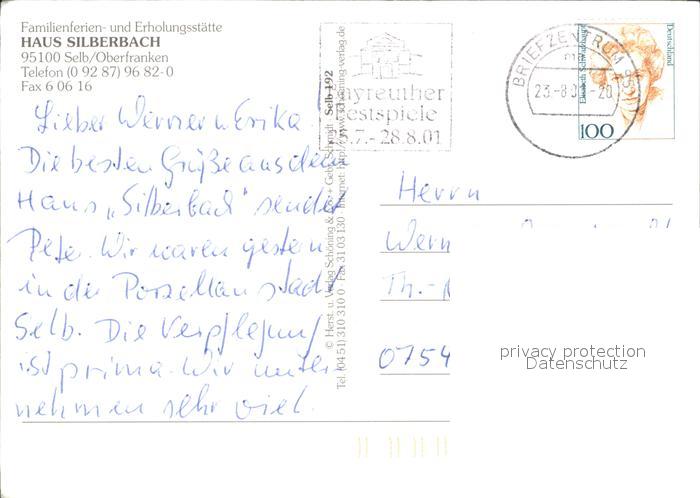 Familienferien- und Erholungsstätte
HAUS SILBERBACH
95100 Selb/Oberfranken
Telefon (0 92 87) 96 82-0
Fax 6 06 16
Lieber Werner u. Erika!
Die besten Grüße aus dem
Haus „Silberbach" sendet
Peter. Wir waren gestern
in der Porzellanstadt
Selb. Die Verpflegung
ist prima. Wir unter-
nehmen sehr viel.
© Herst. u. Verlag Schöning & Co. + Gebr. Schmidt · Selb 192
Tel. (04 51) 310 310 0 · Fax 31 03 130 · Internet: http://www.schöning-verlag.de
ayreuther
estspiele
.7.- 28.8.01
BRIEFZENTRUM 95
23.-8.01-20
Deutschland
Elisabeth Schwarzhaupt
100
Herrn
Wern
Th.-
0754
privacy protection
Datenschutz